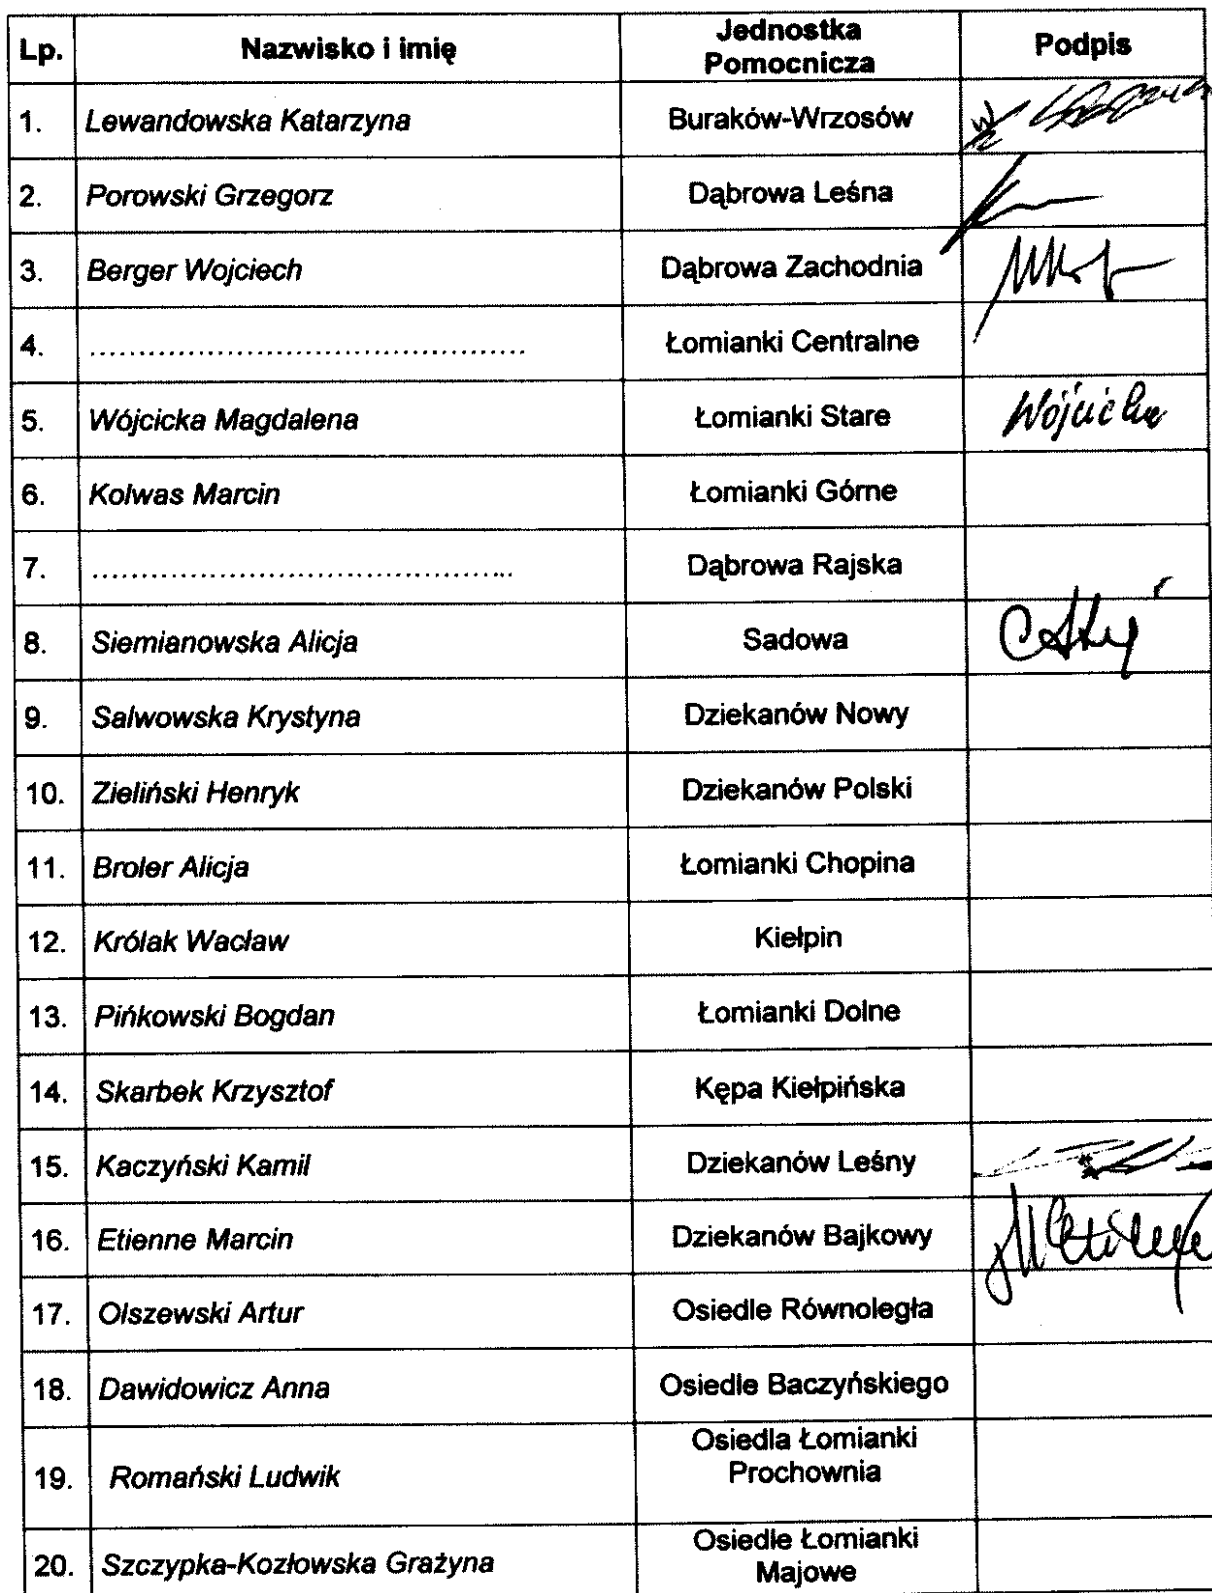 Lp. Nazwisko i imię Jednostka Pomocnicza Podpis
1. Lewandowska Katarzyna Buraków-Wrzosów
2. Porowski Grzegorz Dąbrowa Leśna
3. Berger Wojciech Dąbrowa Zachodnia
4. ............................................ Łomianki Centralne
5. Wójcicka Magdalena Łomianki Stare Wójcicka
6. Kolwas Marcin Łomianki Górne
7. ........................................... Dąbrowa Rajska
8. Siemianowska Alicja Sadowa
9. Salwowska Krystyna Dziekanów Nowy
10. Zieliński Henryk Dziekanów Polski
11. Broler Alicja Łomianki Chopina
12. Królak Wacław Kiełpin
13. Pińkowski Bogdan Łomianki Dolne
14. Skarbek Krzysztof Kępa Kiełpińska
15. Kaczyński Kamil Dziekanów Leśny
16. Etienne Marcin Dziekanów Bajkowy
17. Olszewski Artur Osiedle Równoległa
18. Dawidowicz Anna Osiedle Baczyńskiego
19. Romański Ludwik Osiedla Łomianki Prochownia
20. Szczypka-Kozłowska Grażyna Osiedle Łomianki Majowe